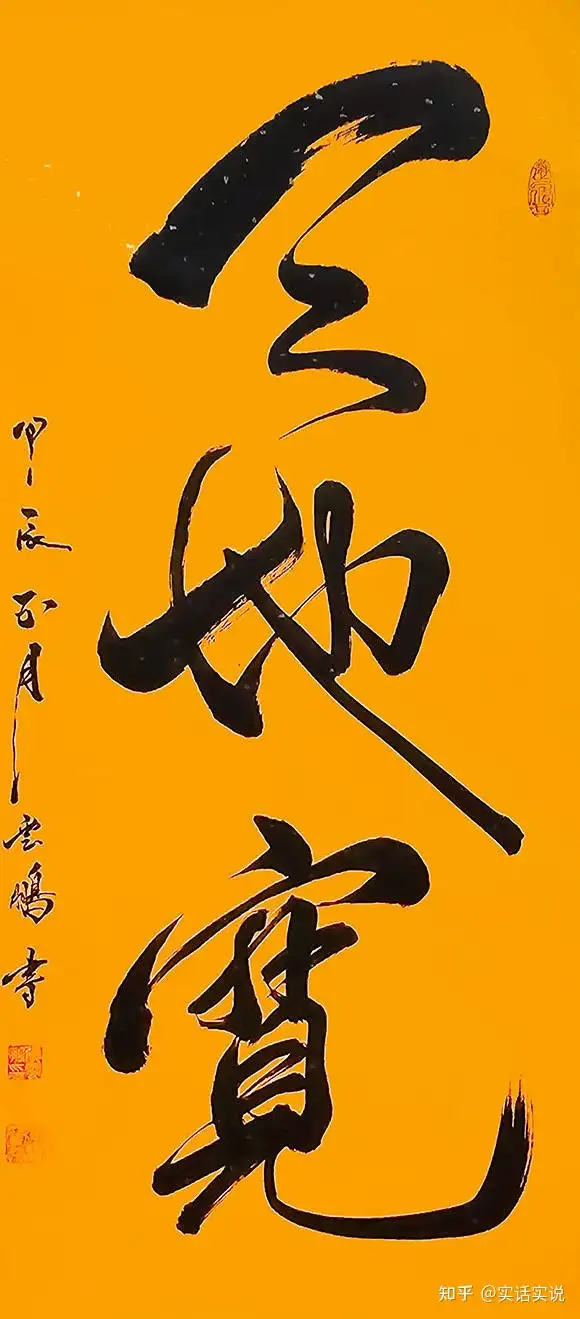 天地寬
甲辰正月雲鵬書
知乎 @实话实说